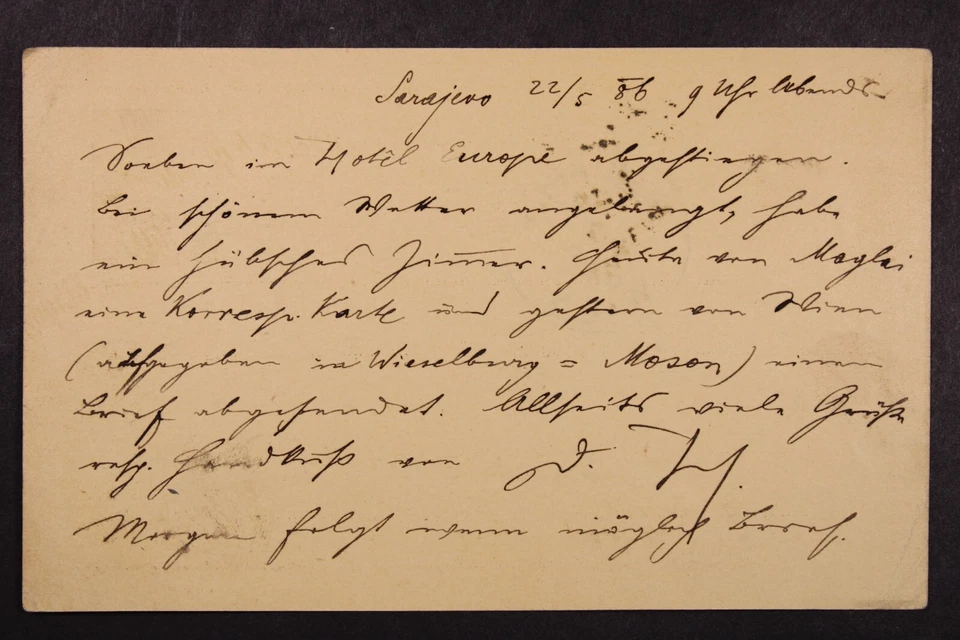 Sarajevo 22/5 86 9 Uhr Abends
Soeben im Hotêl Europe abgestiegen.
Bei schönem Wetter angelangt, habe
ein hübsches Zimmer. Heute von Maglai
eine Korresp. Karte und gestern von Wien
(aufgegeben in Wieselburg = Moson) einen
Brief abgesendet. Allseits viele Grüße
resp. Handkuß von D.
Morgen folgt wenn möglich Brief.